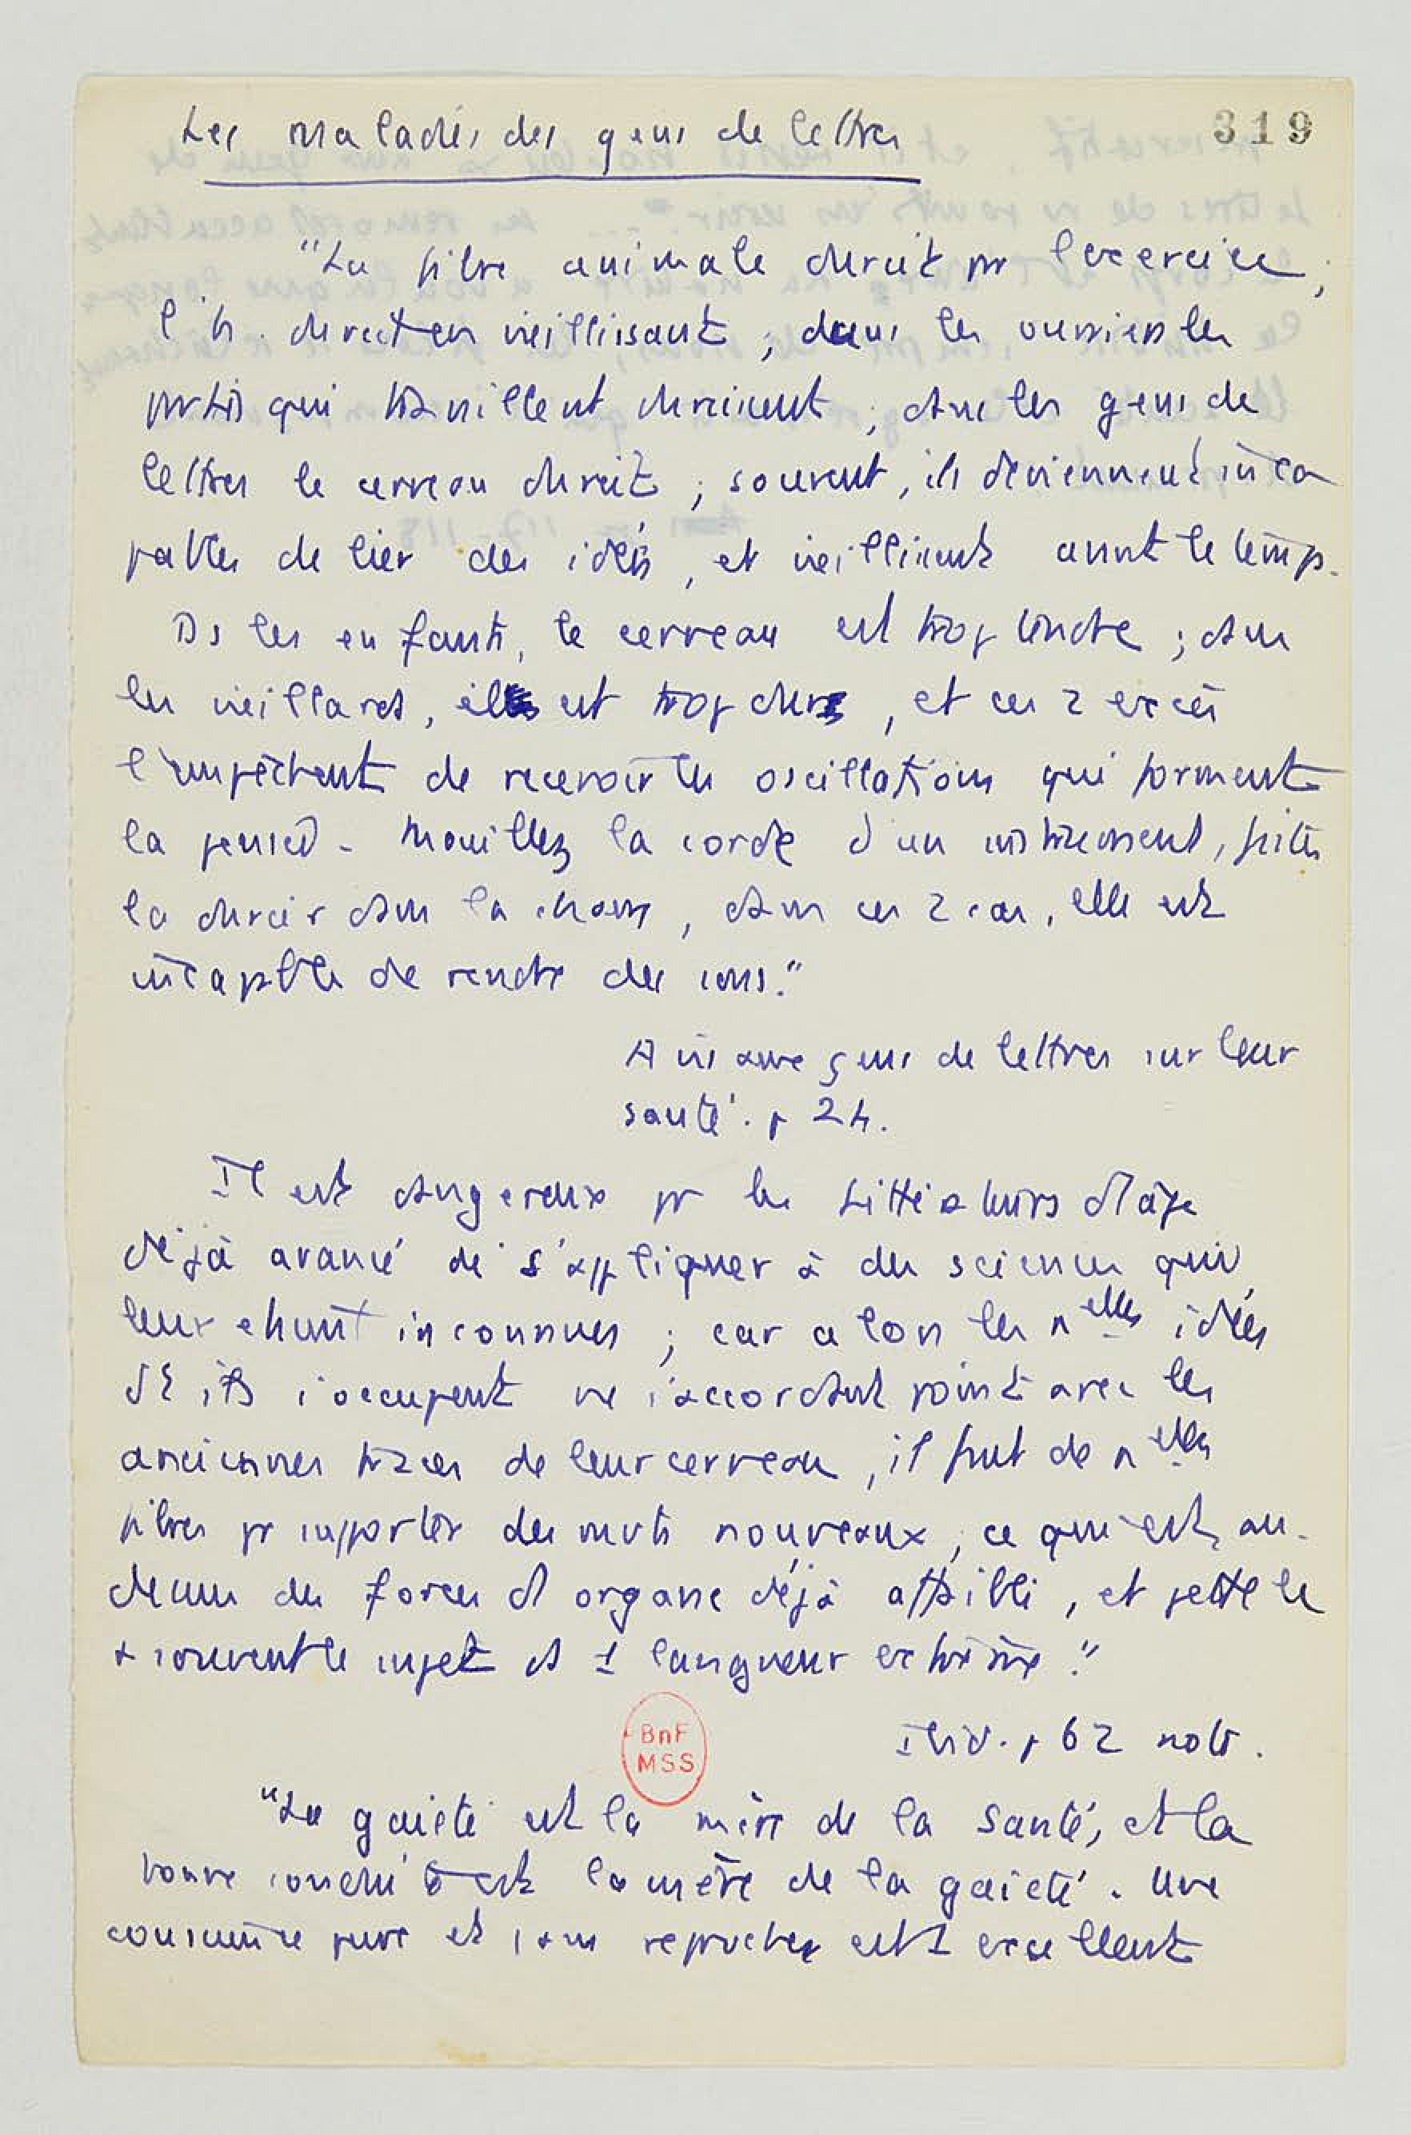 Les maladies des gens de lettres
319
"La fibre animale durcit pr l'exercice ;
l'h. durcit en vieillissant ; dans les ouvriers les
parties qui travaillent durcissent ; dans les gens de
lettres le cerveau durcit ; souvent, ils deviennent inca
pables de lier des idées, et vieillissent avant le temps.
Ds les enfants, le cerveau est trop tendre ; dans
les vieillards, il est trop dur, et ces 2 excès
l'empêchent de recevoir les oscillations qui forment
la pensée. Mouillez la corde d'un instrument, faites
la durcir dans la chaux, dans ces 2 cas, elle est
incapable de rendre des sons."
Avis aux gens de lettres sur leur
santé. p 24.
Il est dangereux pr les Littérateurs d'âge
déjà avancé de s'appliquer à des sciences qui
leur étaient inconnues ; car alors les nelles idées
dt ils s'occupent ne s'accordant point avec les
anciennes traces de leur cerveau, il faut de nelles
fibres pr supporter des mots nouveaux, ce qui est au-
dessus des forces d'organe déjà affaibli, et jette le
+ souvent le sujet ds 1 langueur extrême."
Ibid. p 62 note.
BnF
MSS
"La gaieté est la mère de la santé, et la
bonne conduite est la mère de la gaieté. Une
conscience pure et sans reproches est 1 excellent